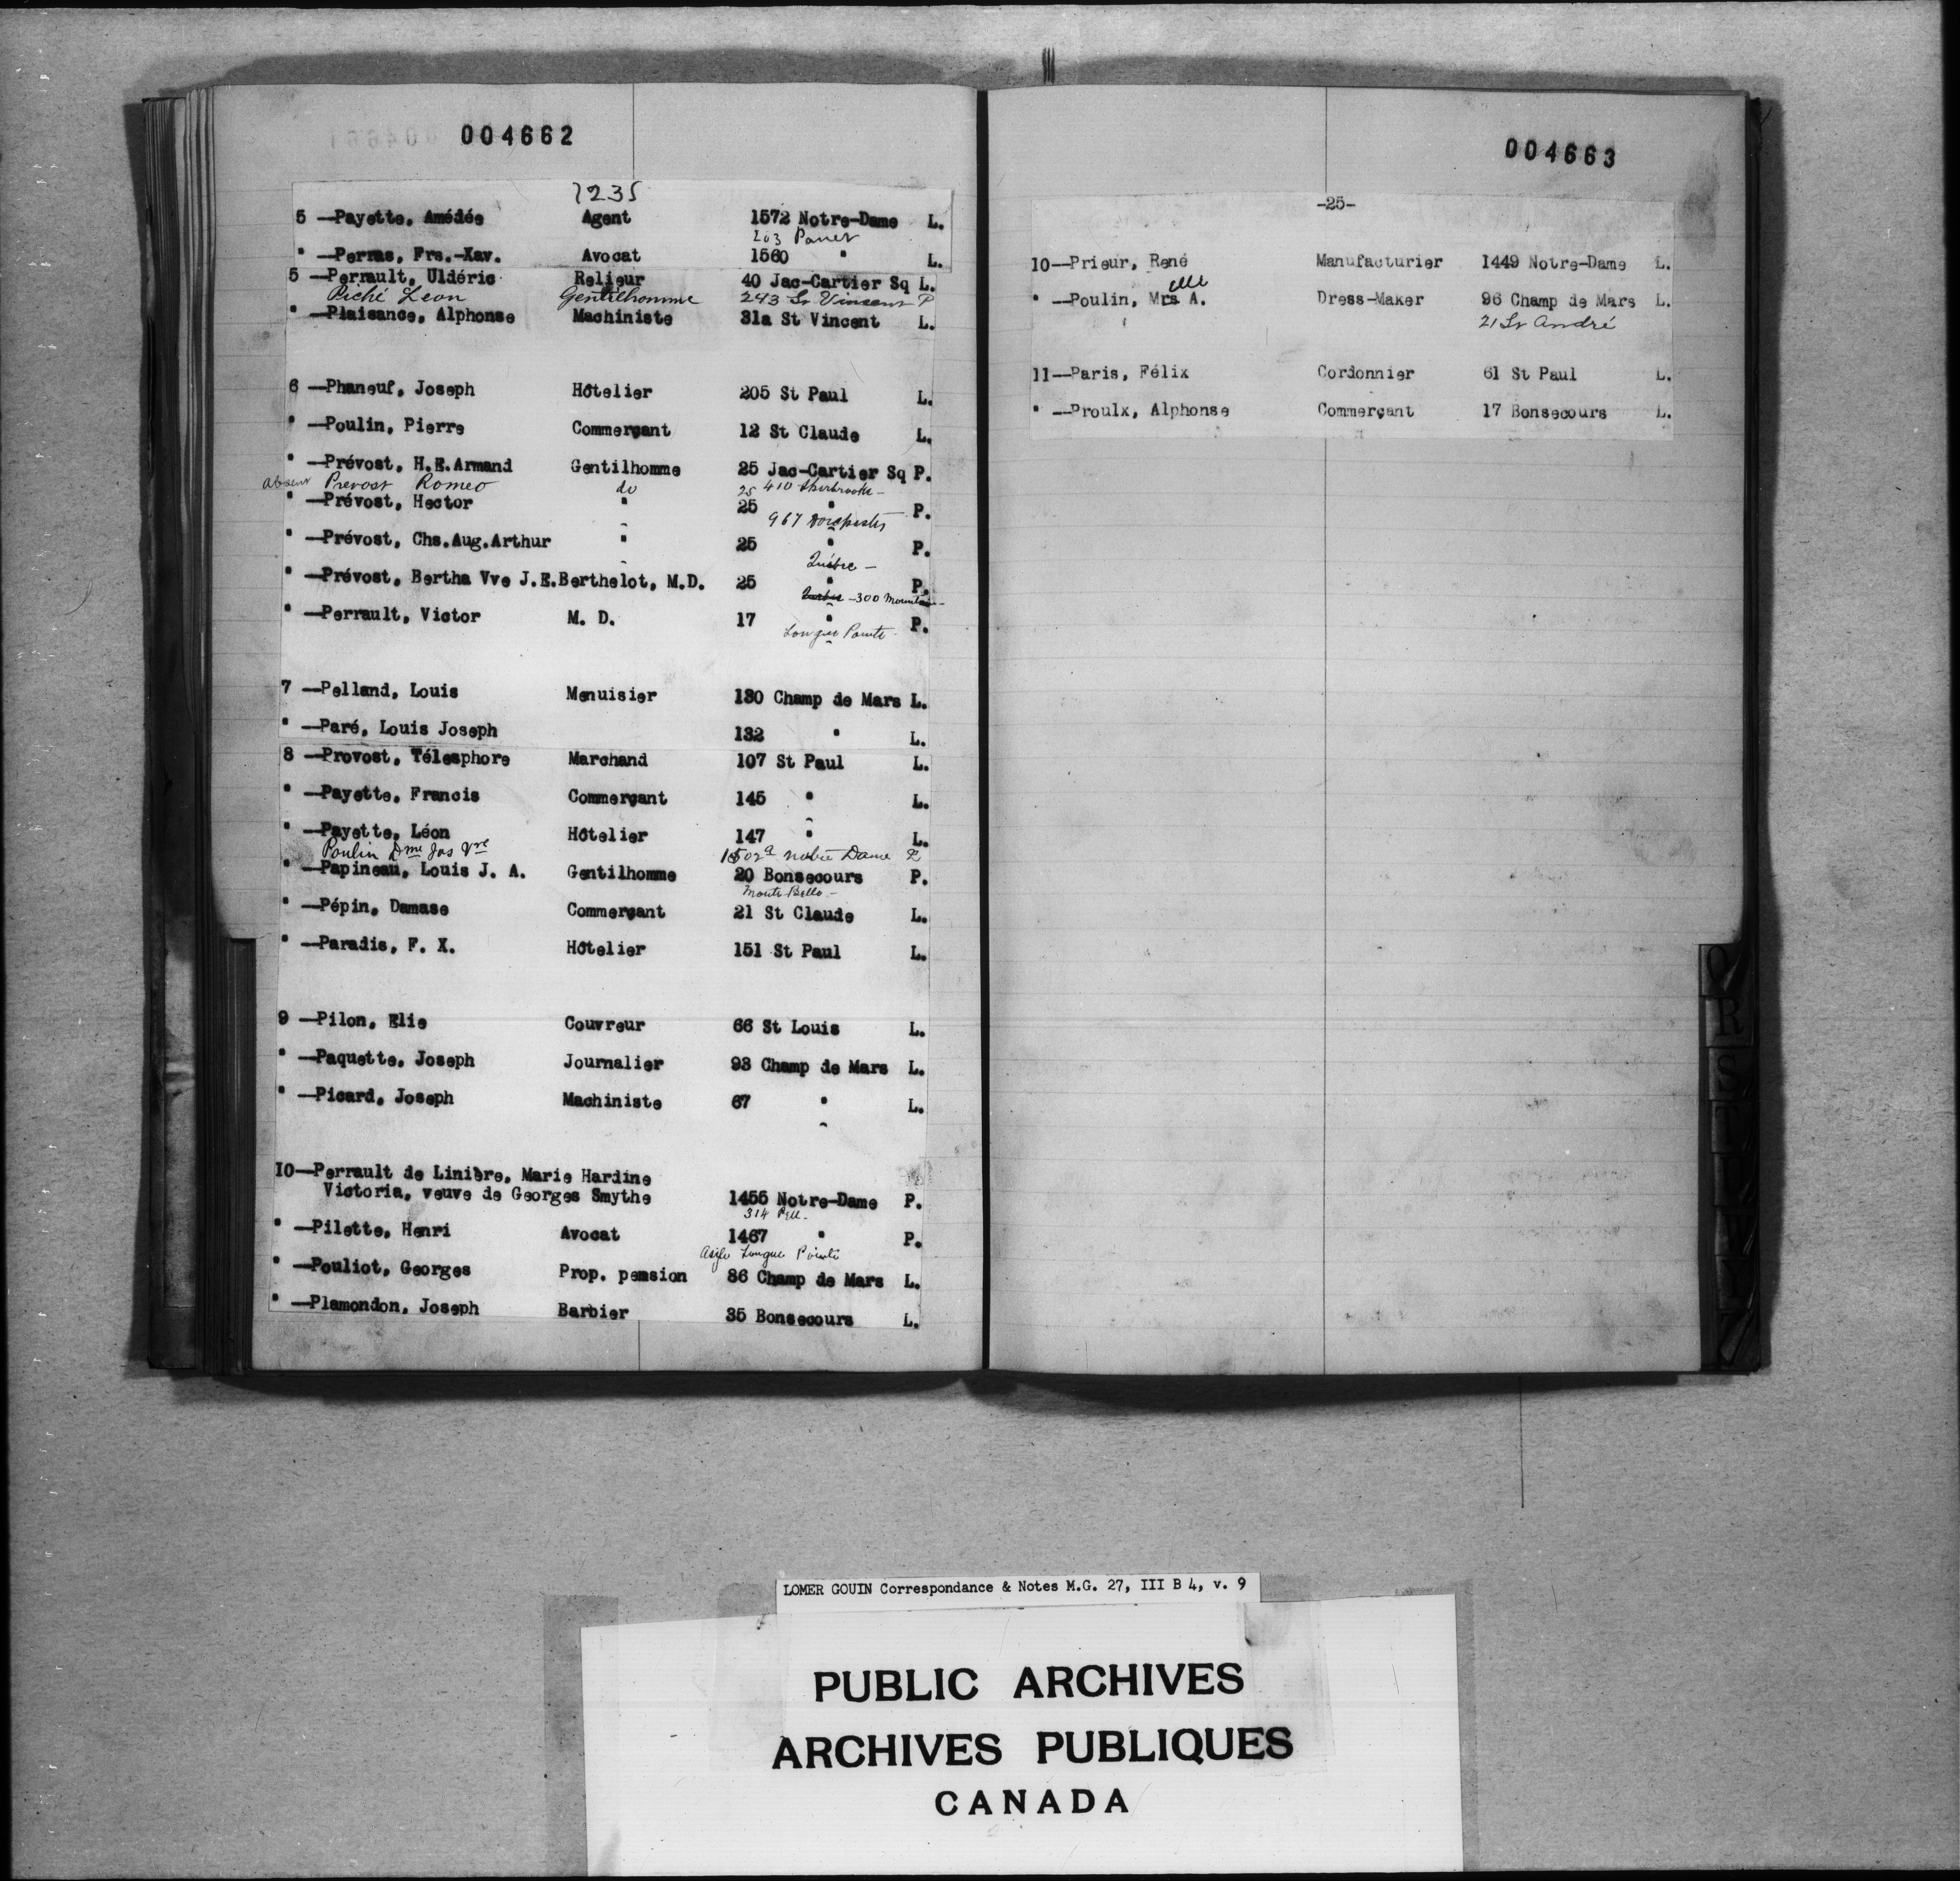 004662
1235
5 —Payette, Amédée Agent 1572 Notre-Dame L.
203 Panet
" —Perras, Frs.-Xav. Avocat 1560 " L.
5 —Perrault, Uldéric Relieur 40 Jac-Cartier Sq L.
Piché Leon Gentilhomme 243 St Vincent P
" —Plaisance, Alphonse Machiniste 31a St Vincent L.
6 —Phaneuf, Joseph Hôtelier 205 St Paul L.
" —Poulin, Pierre Commerçant 12 St Claude L.
" —Prévost, H.E.Armand Gentilhomme 25 Jac-Cartier Sq P.
absent Prevost Romeo do 25 410 Sherbrooke —
" —Prévost, Hector " 25 " P.
967 Dorchester
" —Prévost, Chs.Aug.Arthur " 25 " P.
Québec —
" —Prévost, Bertha Vve J.E.Berthelot, M.D. 25 " P.
Québec —300 Mountain—
" —Perrault, Victor M. D. 17 " P.
Longue Pointe
7 —Pelland, Louis Menuisier 130 Champ de Mars L.
" —Paré, Louis Joseph 132 " L.
8 —Provost, Télesphore Marchand 107 St Paul L.
" —Payette, Francis Commerçant 145 " L.
" —Payette, Léon Hôtelier 147 " L.
Poulin Dme Jos Vve 1502a Notre Dame P
" —Papineau, Louis J. A. Gentilhomme 20 Bonsecours P.
Monte Bello —
" —Pépin, Damase Commerçant 21 St Claude L.
" —Paradis, F. X. Hôtelier 151 St Paul L.
9 —Pilon, Elie Couvreur 66 St Louis L.
" —Paquette, Joseph Journalier 93 Champ de Mars L.
" —Picard, Joseph Machiniste 67 " L.
10—Perrault de Linière, Marie Hardine
Victoria, veuve de Georges Smythe 1455 Notre-Dame P.
314
" —Pilette, Henri Avocat 1467 " P.
Asile Longue Pointe
" —Pouliot, Georges Prop. pension 86 Champ de Mars L.
" —Plamondon, Joseph Barbier 35 Bonsecours L.
004663
-25-
10—Prieur, René Manufacturier 1449 Notre-Dame L.
elle
" —Poulin, Mrs A. Dress-Maker 96 Champ de Mars L.
21 St André
11—Paris, Félix Cordonnier 61 St Paul L.
" —Proulx, Alphonse Commerçant 17 Bonsecours L.
Q
R
S
T
V
Y
Z
LOMER GOUIN Correspondance & Notes M.G. 27, III B 4, v. 9
PUBLIC ARCHIVES
ARCHIVES PUBLIQUES
CANADA